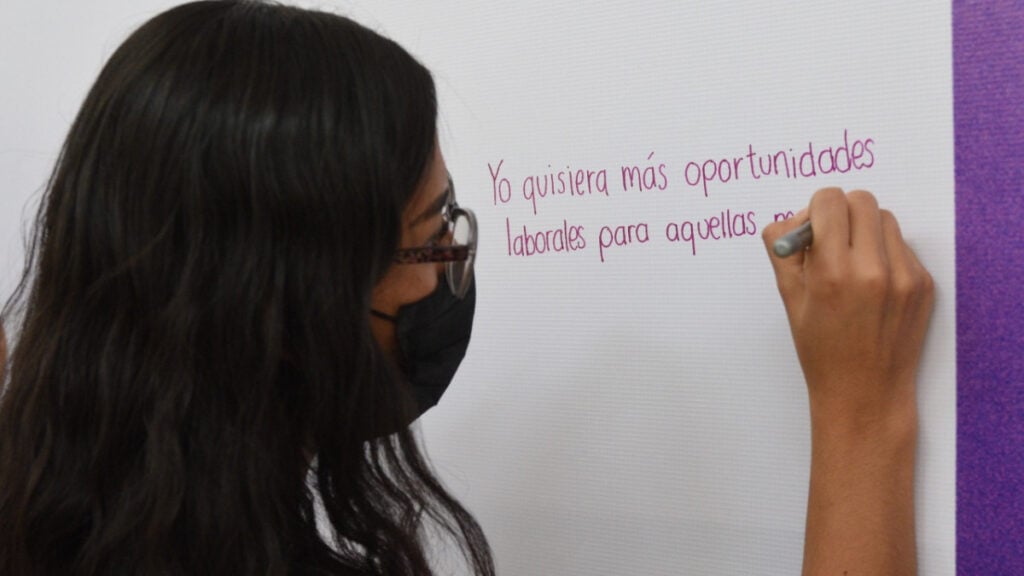 Yo quisiera más oportunidades
laborales para aquellas